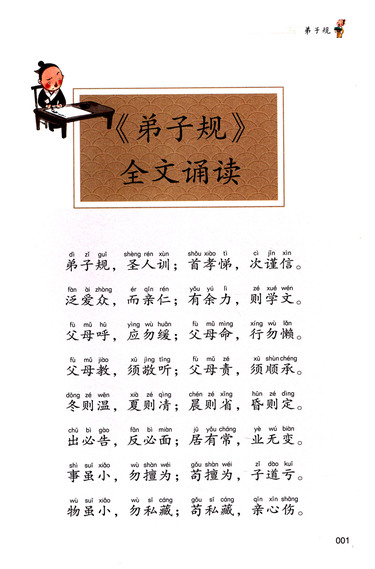 弟子规
《弟子规》
全文诵读
dì zǐ guī shèng rén xùn shǒu xiào tì cì jǐn xìn
弟子规，圣人训；首孝悌，次谨信。
fàn ài zhòng ér qīn rén yǒu yú lì zé xué wén
泛爱众，而亲仁；有余力，则学文。
fù mǔ hū yìng wù huǎn fù mǔ mìng xíng wù lǎn
父母呼，应勿缓；父母命，行勿懒。
fù mǔ jiào xū jìng tīng fù mǔ zé xū shùn chéng
父母教，须敬听；父母责，须顺承。
dōng zé wēn xià zé qìng chén zé xǐng hūn zé dìng
冬则温，夏则凊；晨则省，昏则定。
chū bì gào fǎn bì miàn jū yǒu cháng yè wú biàn
出必告，反必面；居有常，业无变。
shì suī xiǎo wù shàn wéi gǒu shàn wéi zǐ dào kuī
事虽小，勿擅为；苟擅为，子道亏。
wù suī xiǎo wù sī cáng gǒu sī cáng qīn xīn shāng
物虽小，勿私藏；苟私藏，亲心伤。
001